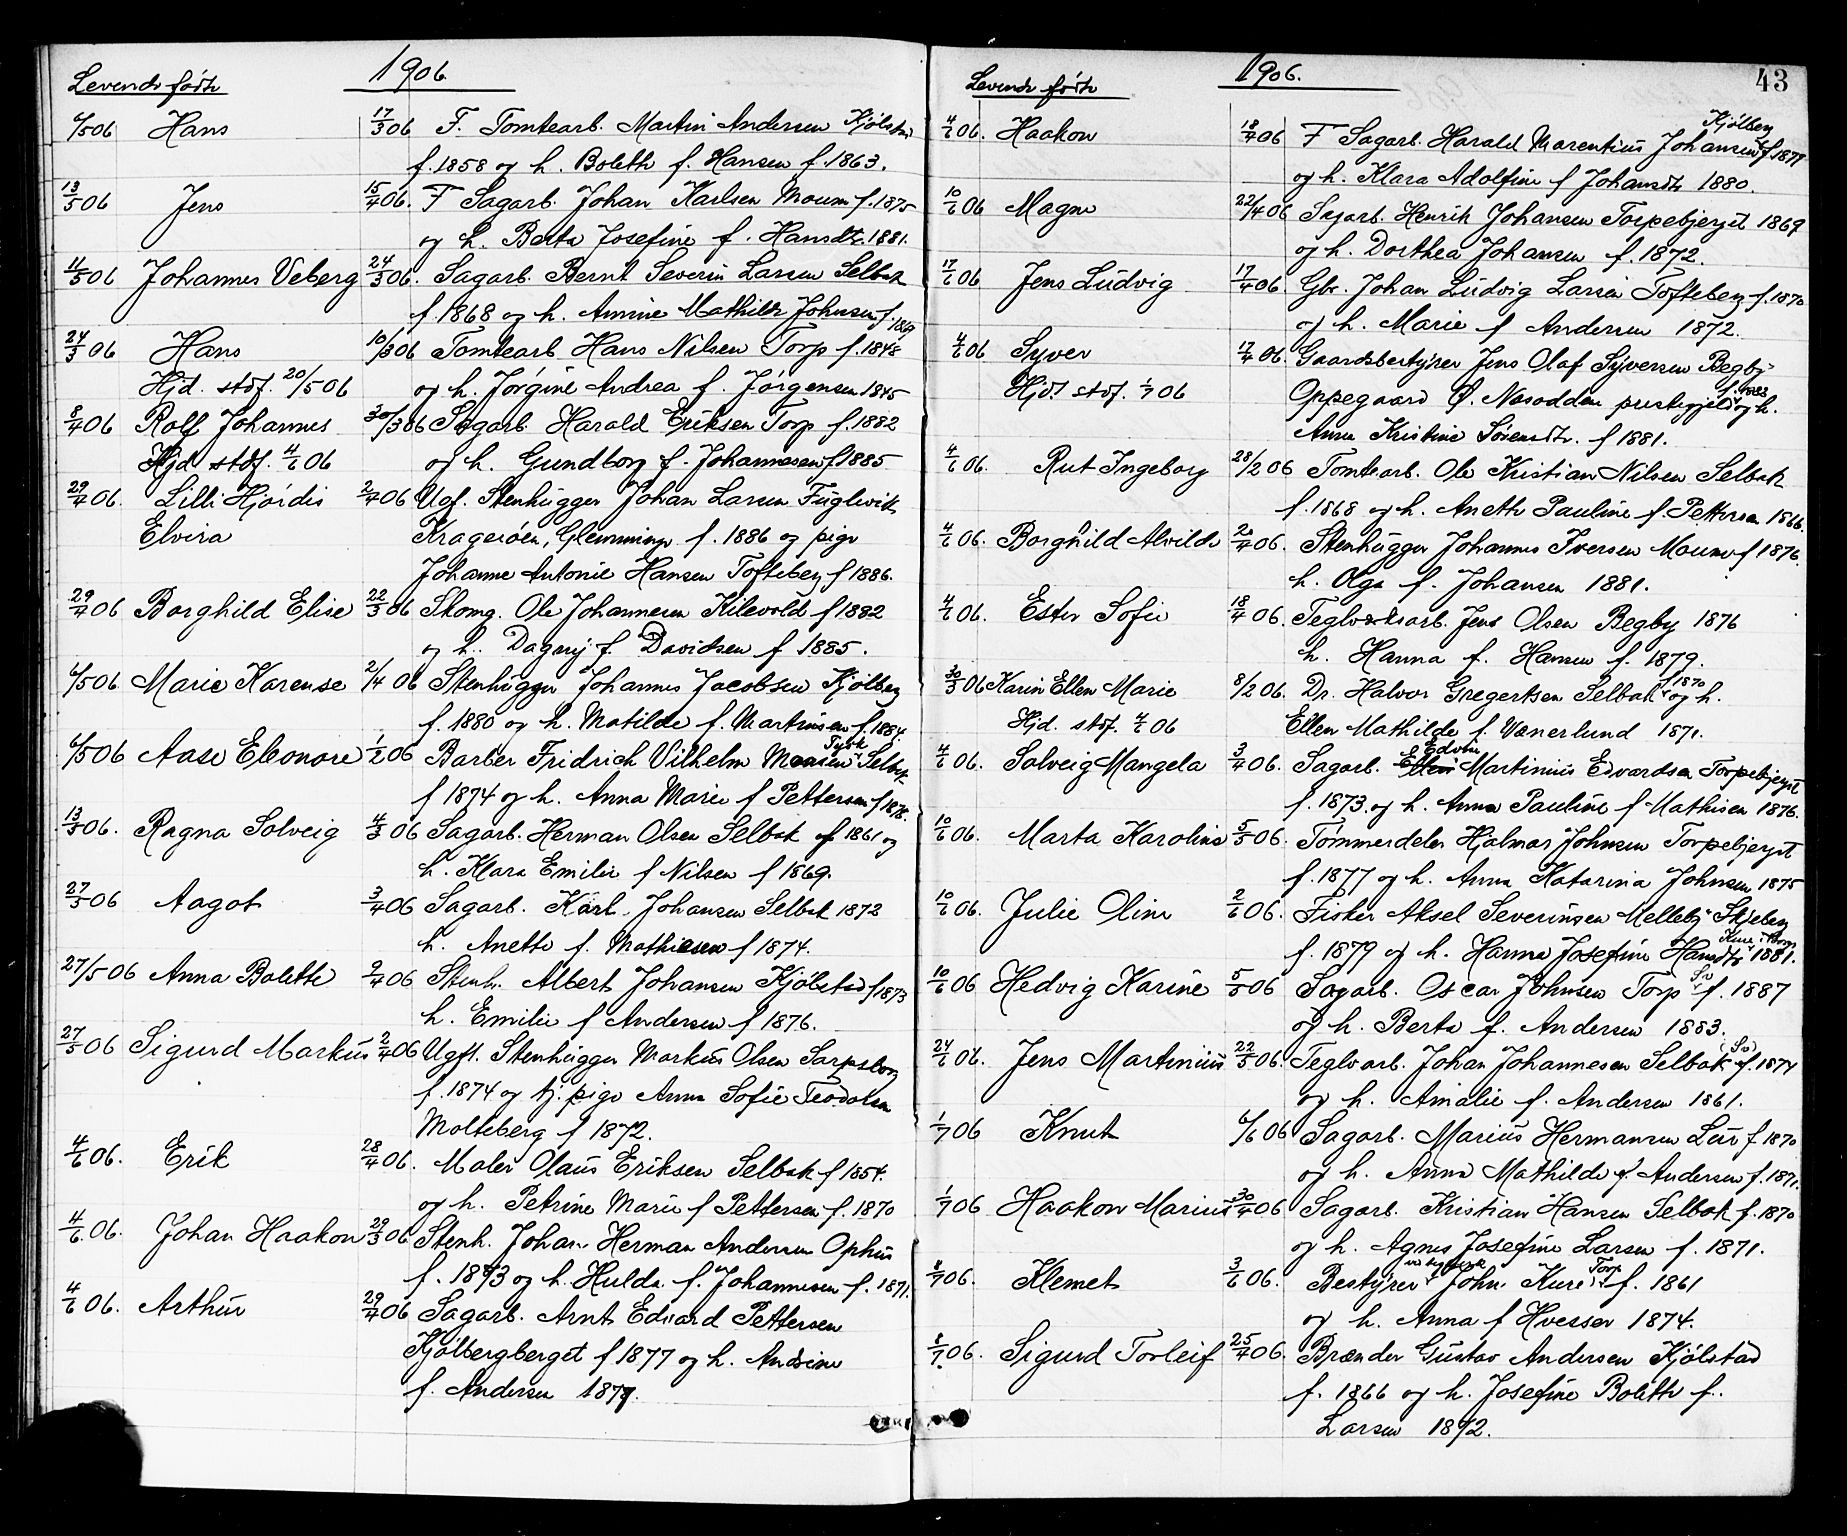 Levende fødte 1906.
6/5 06 Hans 17/3 06 F. Tomtearb. Martin Andersen Kjølstad
f. 1858 og h. Boleth f. Hansen f. 1863.
13/5 06 Jens 15/4 06. F Sagarb. Johan Karlsen Moum f. 1875
og h. Berta Josefine f. Hansdtr. 1881.
Johannes Veberg 24/3 06. Sagarb. Bernt Severin Larsen Selbak
f. 1868 og h. Amine Mathilde Johnsen f. 1869
24/3 06 Hans 10/3 06 Tomtearb Hans Nilsen Torp f. 1848
Hjd. stdf. 20/5 06 og h. Jørgine Andrea f. Jørgensen 1845
8/4 06 Rolf Johannes 30/3 06 Sagarb. Harald Eriksen Torp f. 1882
Hjd stdf. 4/6 06 og h. Gundborg f. Johannesen f 1885
29/4 06. Lilli Hjørdis 2/4 06 Ugf. Stenhugger Johan Larsen Fuglevik
Elvira Kragerøen, Glemminge f. 1886 og pige
Johanne Antonie Hansen Tofteberg f 1886.
29/4 06 Borghild Elise 22/3 06 Skomg. Ole Johannesen Kilevold f 1882
og h. Dagny f. Davidsen f 1885.
6/5 06 Marie Karense 2/4 06 Stenhugger Johannes Jacobsen Kjølberg
f. 1880 og h. Matilde f. Martinsen f. 1884.
6/5 06 Aase Eleonore 1/2 06 Barber Fridrich Vilhelm Monsen Tysk Selbak
f 1874 og h. Anna Marie f Pettersen f 1878.
13/5 06. Ragna Solveig 4/3 06 Sagarb. Herman Olsen Selbak f 1861 og
h. Klara Emilie f Nilsen f 1869.
27/5 06 Aagot 3/4 06 Sagarb. Karl Johansen Selbak 1872
h. Anette f. Mathiesen f 1874.
27/5 06 Anna Boleth 2/4 06 Stenh. Albert Johansen Kjølstad f 1873
h. Emilie f Andersen f 1876.
27/5 06 Sigurd Markus 2/4 06 Ugft. Stenhugger Markus Olsen Sarpsborg
f. 1874 og tj. pige Anna Sofie Teodorsen
Molteberg f 1872.
4/6 06. Erik 28/4 06. Maler Olaus Eriksen Selbak f 1854.
og h. Petrine Marie f Pettersen f. 1870
4/6 06. Johan Haakon 29/3 06 Stenh. Johan Herman Andersen Ophus
f. 1873 og h. Hulda f. Johannesen f. 1871.
4/6 06. Arthur 29/4 06 Sagarb. Arnt Edvard Pettersen
Kjølbergberget f 1877 og h. Andrine
f. Andersen 1877.
Levende fødte 1906. 43
4/6 06. Haakon 18/4 06 F Sagarb. Harald Marentius Johansen Kjølberg f 1877
og h. Klara Adolfine f Johansdtr 1880.
10/6 06 Magne 22/4 06 Sagarb. Henrik Johansen Torpebjerget 1869
og h. Dorthea Johansen f. 1872.
17/6 06 Jens Ludvig 17/4 06. Gbr. Johan Ludvig Larsen Tofteberg f. 1870
og h. Marie f Andersen 1872.
4/6 06 Syver 17/4 06. Gaardsbestyrer Jens Olaf Syversen Begby
Hjd. stdf. 1/7 06 Oppegaard Ø. Nesodden prestegjeld f. 1882 og h.
Anna Kristine Sørensdtr. f 1881.
4/6 06. Rut Ingeborg 28/2 06 Tomtearb. Ole Kristian Nilsen Selbak
f. 1868 og h. Aneth Pauline f. Pettersen 1866.
4/6 06. Borghild Alvilde 2/4 06. Stenhugger Johannes Iversen Moum f 1876.
h. Olga f. Johansen 1881.
4/6 06. Ester Sofie 18/4 06. Teglverksarb. Jens Olsen Begby 1876
h. Hanna f. Hansen f. 1879.
30/3 06 Karin Ellen Marie 8/2 06. Dr. Halvor Gregertsen Selbak f 1870 og h.
Hjd. stdf. 4/6 06 Ellen Mathilde f. Wenerlund 1871.
4/6 06. Solveig Mangela 3/4 06. Sagarb. Edvin Martinius Edvardsen Torpebjerget
f. 1873. og h. Anna Pauline f Mathisen 1876.
10/6 06. Marta Karoline 5/5 06. Tømmerdeler Hjalmar Johnsen Torpebjerget
f. 1877 og h. Anna Katarina Johnsen 1875
10/6 06. Julie Oline 2/6 06. Fisker Aksel Severinsen Mellebj Skjeberg
f. 1879 og h. Hanna Josefine Hansdtr 1881.
10/6 06 Hedvig Karine 5/5 06 Sagarb. Oscar Johnsen Torp Sv. f. 1887
og h. Berta f. Andersen 1883.
24/6 06. Jens Martinius 22/5 06. Teglvarb. Johan Johannesen Selbak (Sv) f. 1874
og h. Amalie f. Andersen 1861.
1/7 06 Knut 6/6 06 Sagarb. Marius Hermansen Lur f 1870
og h. Anna Mathilde f. Andersen f. 1871.
1/7 06 Haakon Marius 30/4 06 Sagarb. Kristian Hansen Selbak f. 1870
og h. Agnes Josefine Larsen f. 1871.
8/7 06. Klemet 3/6 06. Bestyrer John Kure Torp f. 1861
og h. Anna f Hvesser 1874.
8/7 06. Sigurd Torleif 25/4 06. Brænder Gustav Andersen Kjølstad
f. 1866 og h. Josefine Boleth f.
Larsen 1872.